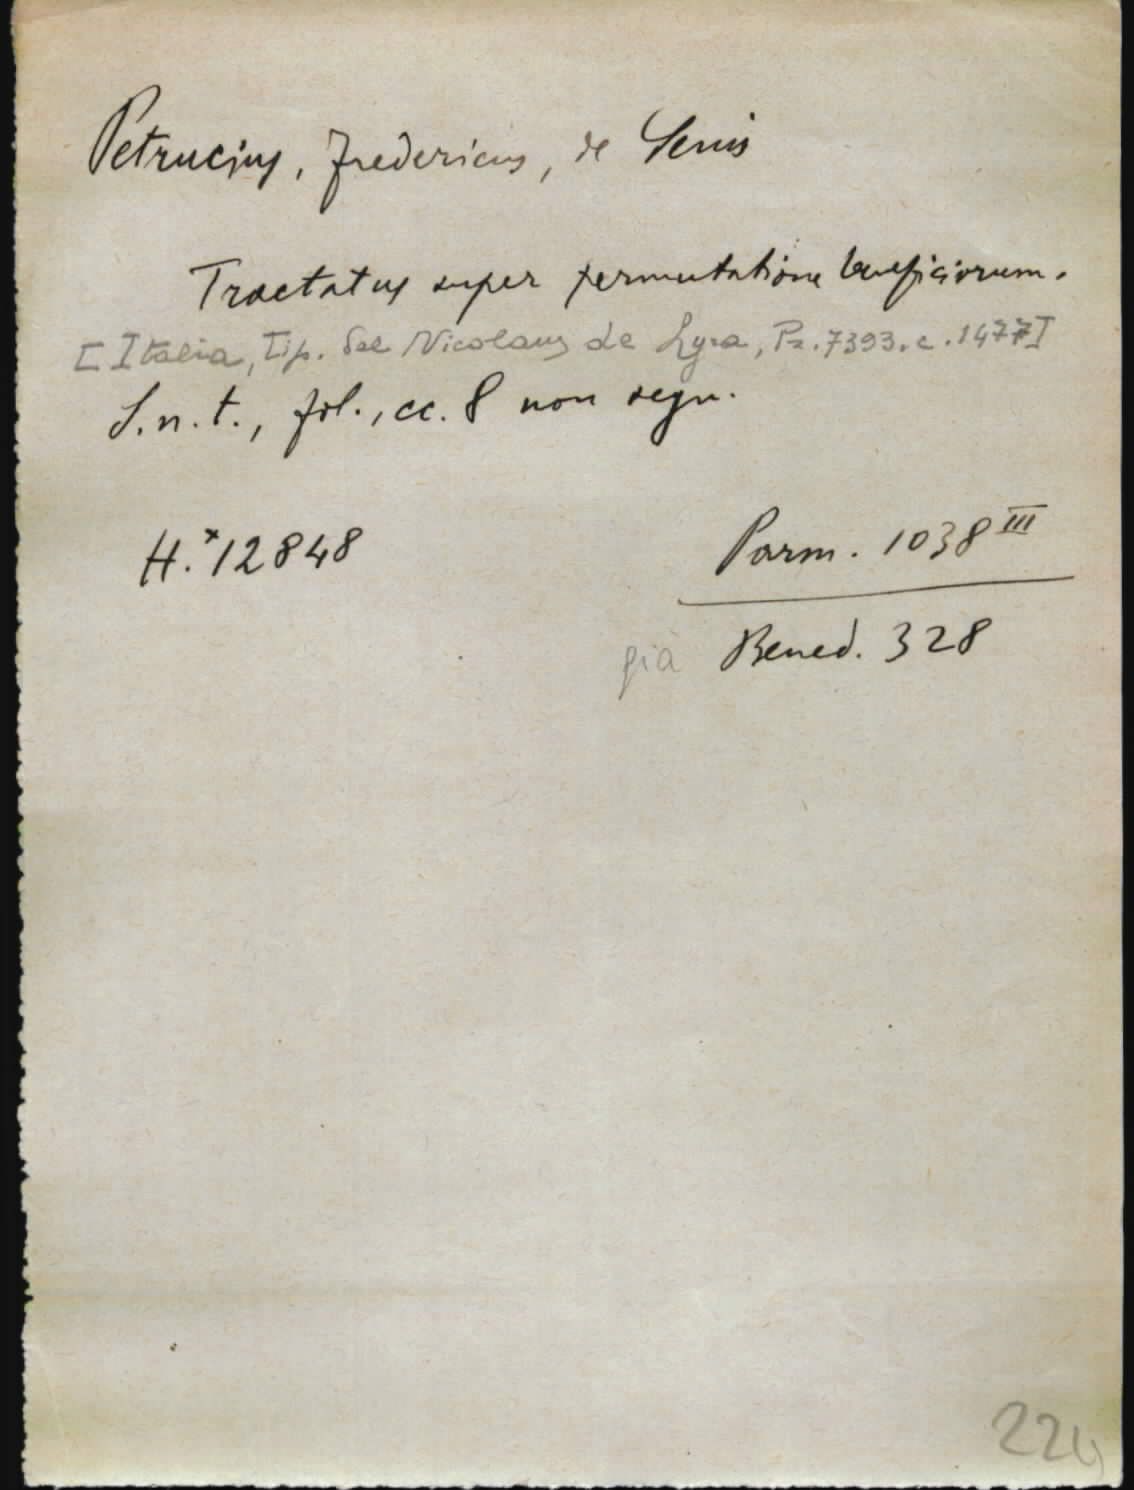 Petrucius, Fredericus, de Senis
Tractatus super permutatione beneficiorum.
[Italia, Tip. del Nicolaus de Lyra, Pr. 7393. c. 1477]
S. n. t., fol., cc. 8 non segn.
H.*12848
Parm. 1038 III
già Bened. 328
224